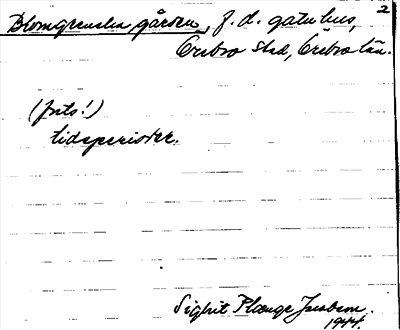 2
Blomgrenska gården, f. d. gatuhus,
Örebro stad, Örebro län.
(forts!)
tidsperioder.
Sigbrit Plænge Jacobson
1944.